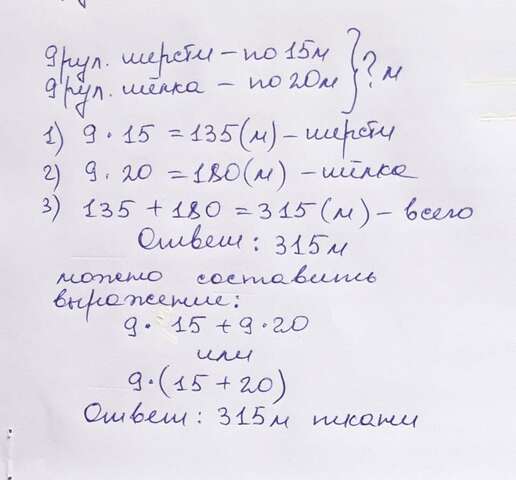 9 рул. шерсти – по 15 м } ? м
9 рул. шёлка – по 20 м
1) 9 · 15 = 135 (м) – шерсти
2) 9 · 20 = 180 (м) – шёлка
3) 135 + 180 = 315 (м) – всего
Ответ: 315 м
можно составить
выражение:
9 · 15 + 9 · 20
или
9 · (15 + 20)
Ответ: 315 м ткани